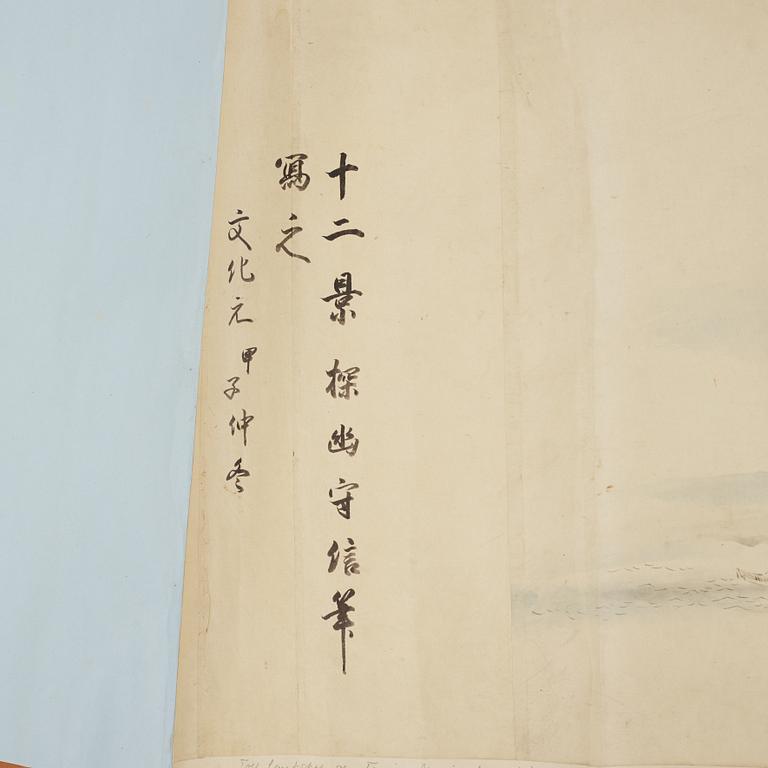 十二景探幽守信筆
寫之
文化元甲子仲冬